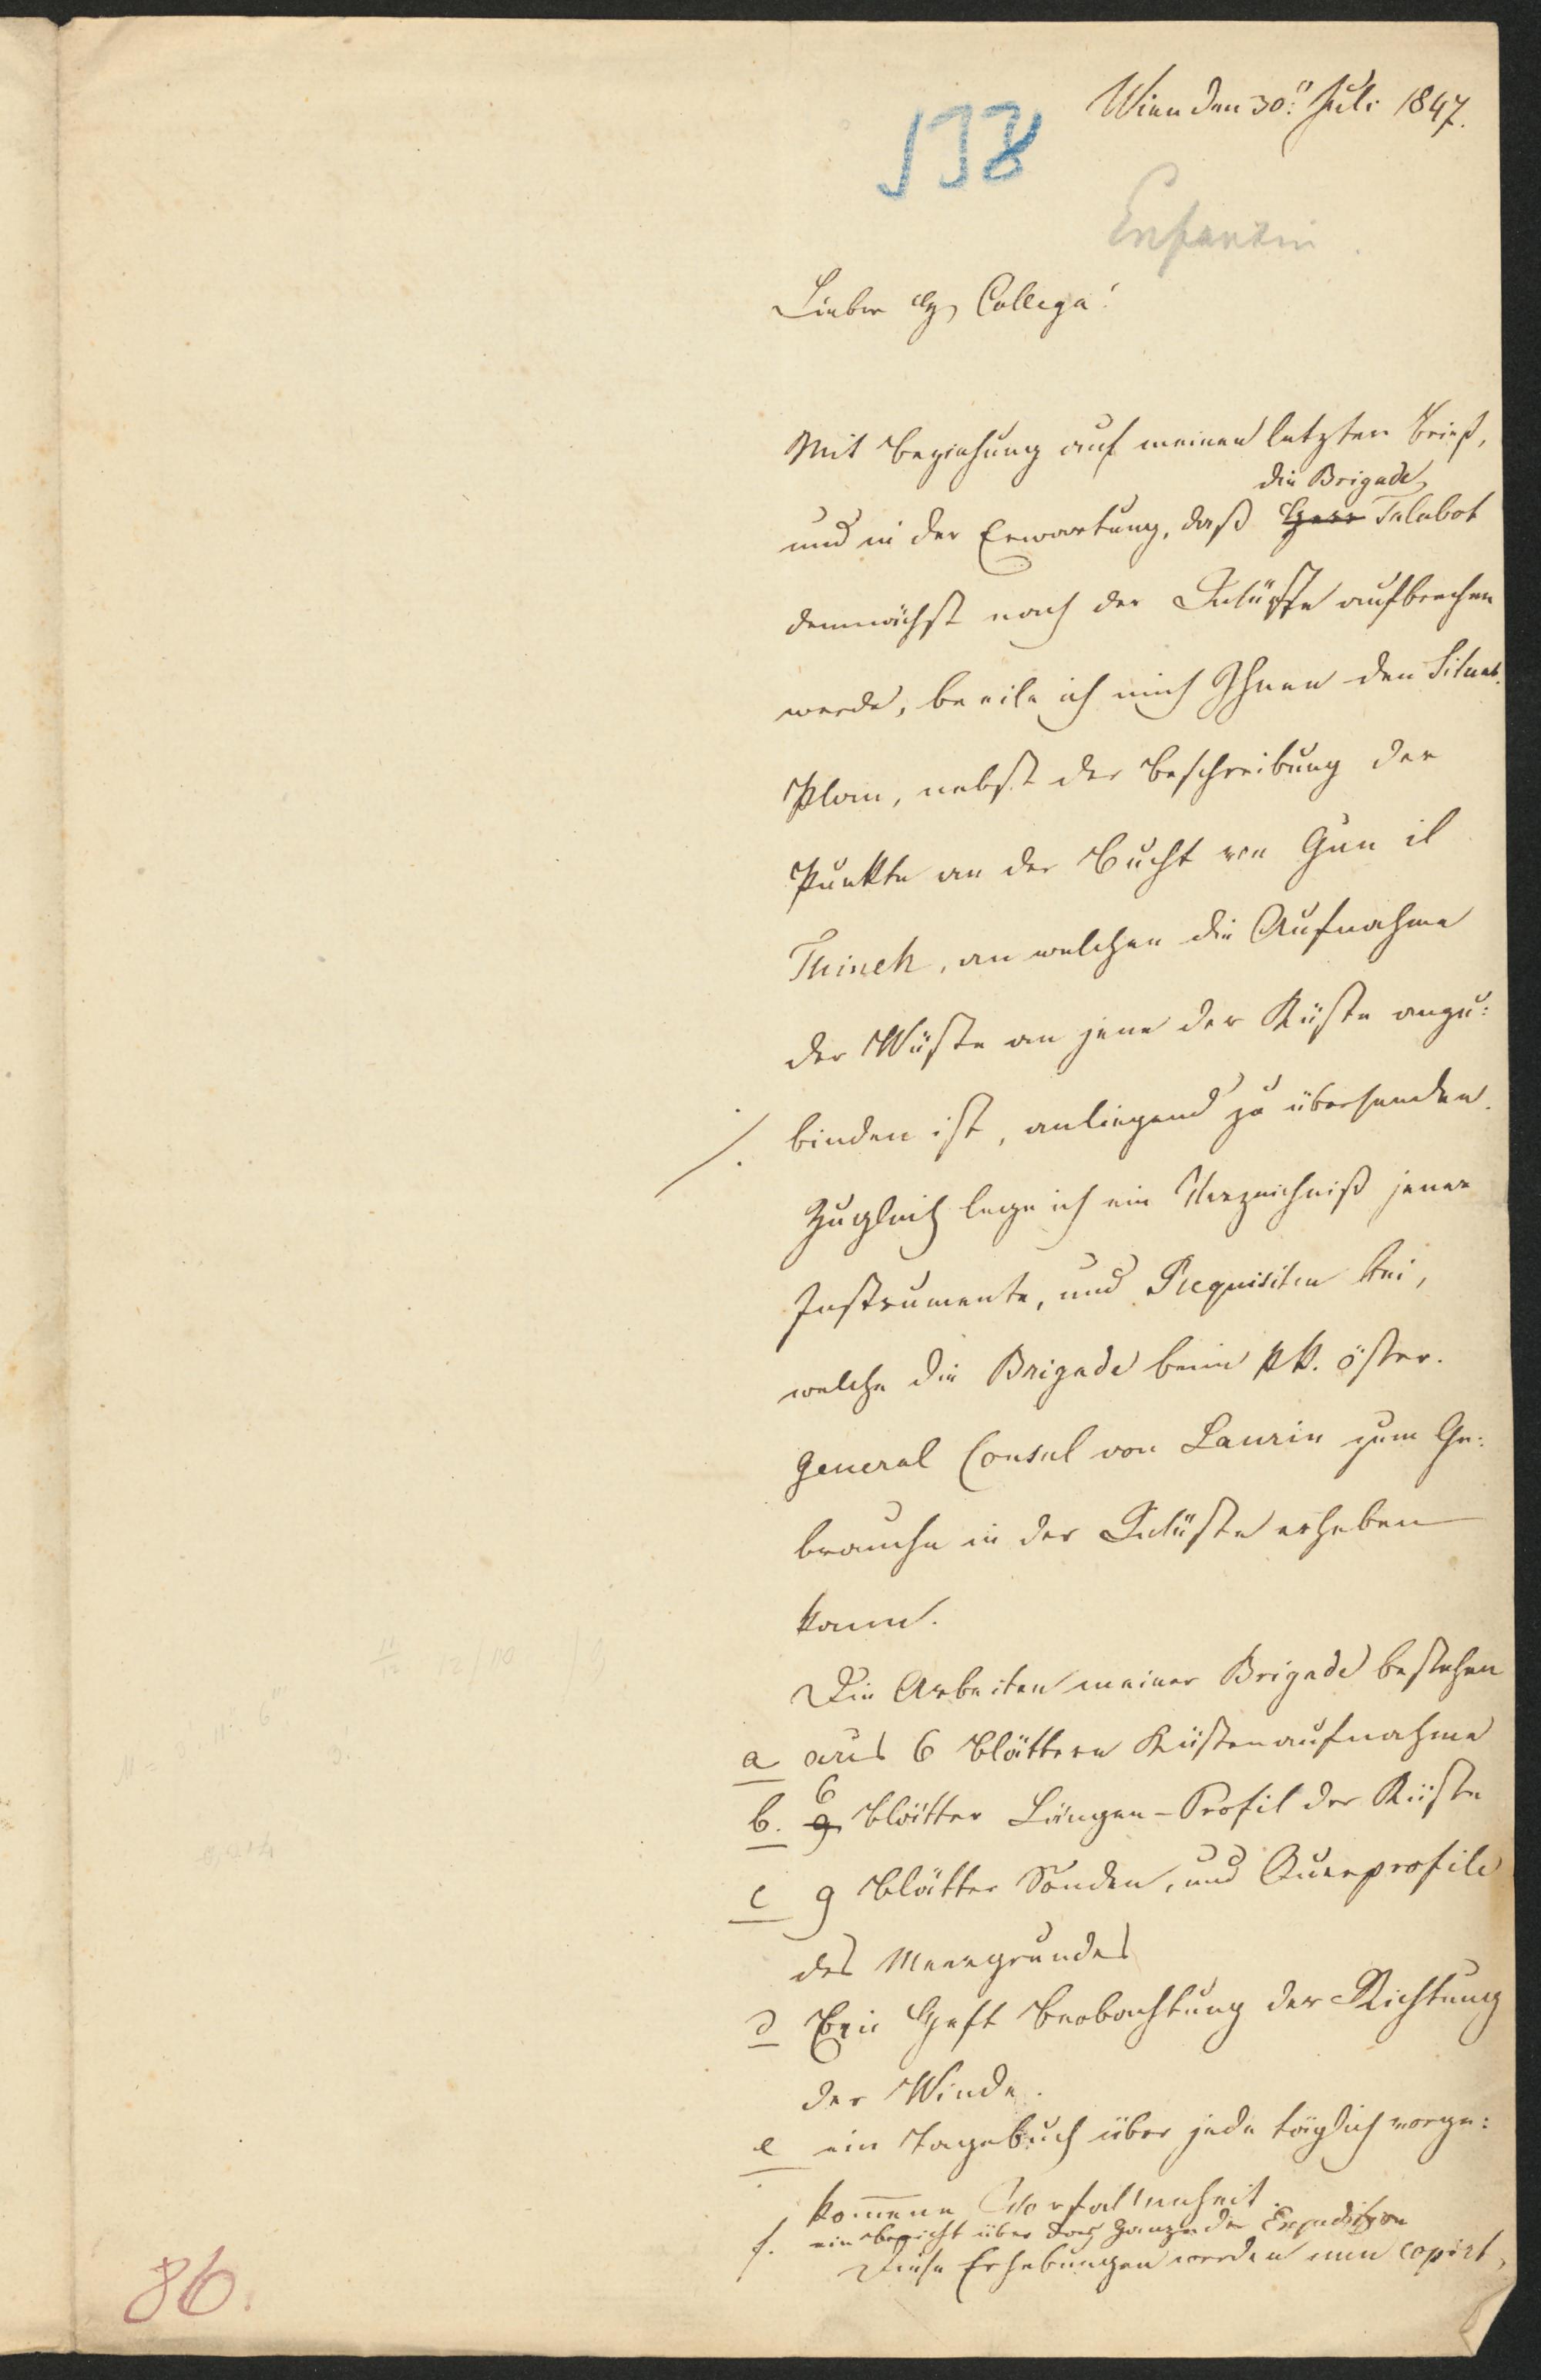 Wien den 30.n Juli 1847.
138
Enfantin
Lieber H. Collega!
Mit Beziehung auf meinen letzten Brief,
die Brigade
und in der Erwartung, daß Herr Talabot
demnächst nach der Wüste aufbrechen
werde, beeile ich mich Ihnen den Situat.
Plan, nebst der Beschreibung der
Punkte an der Bucht von Gun il
Thineh, an welchen die Aufnahme
der Wüste an jene der Küste anzu:
binden ist, anliegend zu übersenden.
Zugleich lege ich ein Verzeichniß jener
Instrumente, und Requisiten bei,
welche die Brigade beim kk. öster.
General Consul von Laurin zum Ge:
brauche in der Wüste erheben
kann.
Die Arbeiten meiner Brigade bestehen
a aus 6 Blättern Küstenaufnahme
6
b. 9 Blätter Längen-Profil der Küste
c 9 Blätter Sonden, und Querprofile
des Meergrundes
d Ein Heft Beobachtung der Richtung
der Winde.
e ein Tagebuch über jede täglich vorge:
kommene Vorfallenheit.
f. ein Bericht über das Ganze der Expedition
Diese Erhebungen werden nun copirt,
86.